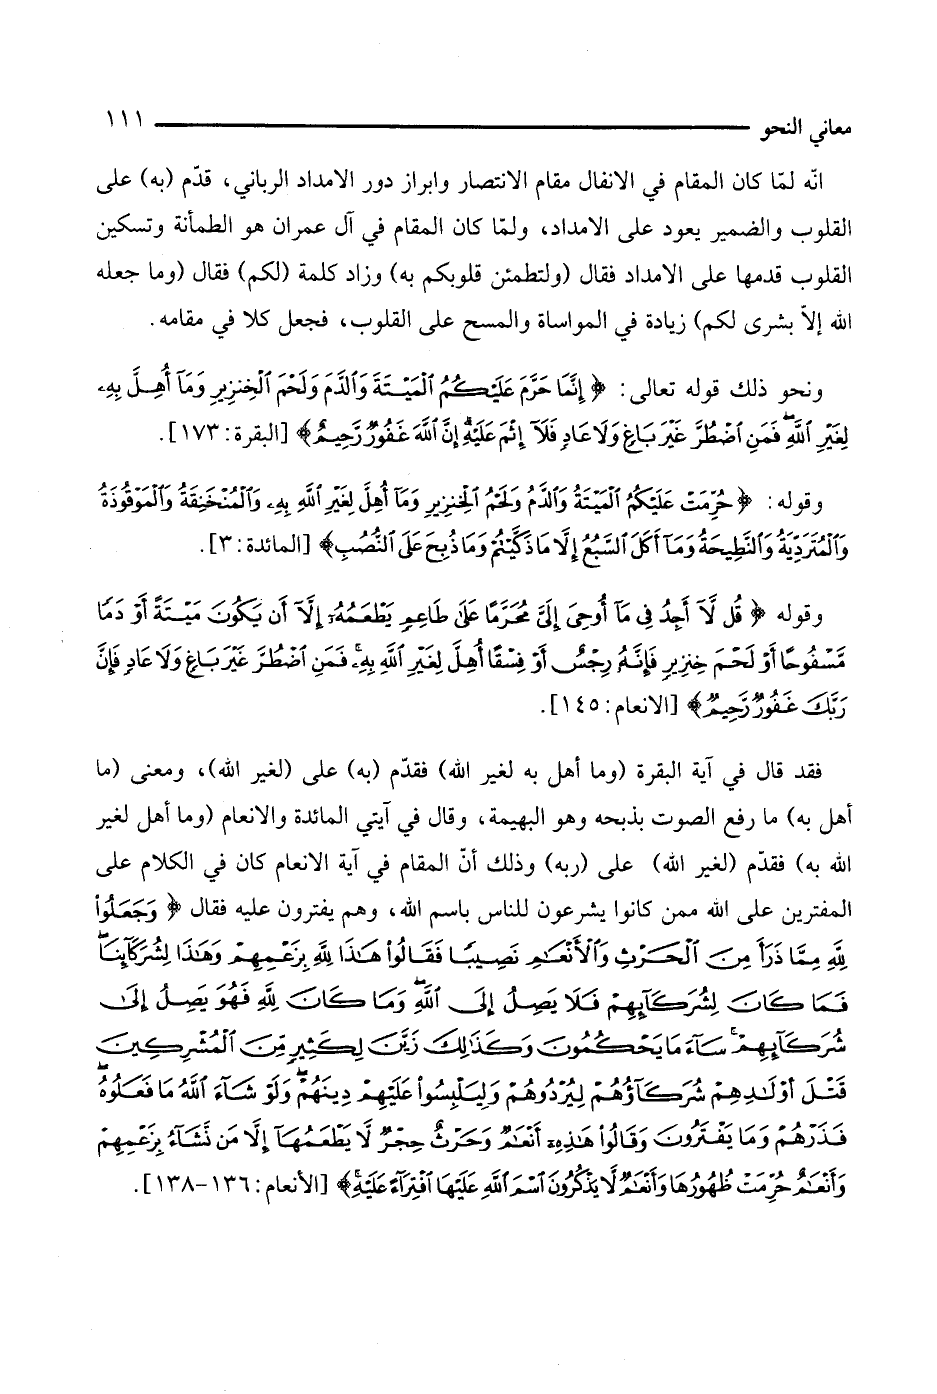 معاني النحو ١١١
انّه لمّا كان المقام في الانفال مقام الانتصار وابراز دور الامداد الرباني، قدّم (به) على
القلوب والضمير يعود على الامداد، ولمّا كان المقام في آل عمران هو الطمأنة وتسكين
القلوب قدمها على الامداد فقال (ولتطمئن قلوبكم به) وزاد كلمة (لكم) فقال (وما جعله
الله إلاّ بشرى لكم) زيادة في المواساة والمسح على القلوب، فجعل كلا في مقامه.
ونحو ذلك قوله تعالى: ﴿ إِنَّمَا حَرَّمَ عَلَيْكُمُ ٱلْمَيْتَةَ وَٱلدَّمَ وَلَحْمَ ٱلْخِنزِيرِ وَمَآ أُهِلَّ بِهِۦ
لِغَيْرِ ٱللَّهِۖ فَمَنِ ٱضْطُرَّ غَيْرَ بَاغٍ وَلَا عَادٍ فَلَآ إِثْمَ عَلَيْهِۚ إِنَّ ٱللَّهَ غَفُورٌ رَّحِيمٌ﴾ [البقرة: ١٧٣].
وقوله: ﴿ حُرِّمَتْ عَلَيْكُمُ ٱلْمَيْتَةُ وَٱلدَّمُ وَلَحْمُ ٱلْخِنزِيرِ وَمَآ أُهِلَّ لِغَيْرِ ٱللَّهِ بِهِۦ وَٱلْمُنْخَنِقَةُ وَٱلْمَوْقُوذَةُ
وَٱلْمُتَرَدِّيَةُ وَٱلنَّطِيحَةُ وَمَآ أَكَلَ ٱلسَّبُعُ إِلَّا مَا ذَكَّيْتُمْ وَمَا ذُبِحَ عَلَى ٱلنُّصُبِ﴾ [المائدة: ٣].
وقوله ﴿ قُل لَّآ أَجِدُ فِى مَآ أُوحِىَ إِلَىَّ مُحَرَّمًا عَلَىٰ طَاعِمٍ يَطْعَمُهُۥٓ إِلَّآ أَن يَكُونَ مَيْتَةً أَوْ دَمًا
مَّسْفُوحًا أَوْ لَحْمَ خِنزِيرٍ فَإِنَّهُۥ رِجْسٌ أَوْ فِسْقًا أُهِلَّ لِغَيْرِ ٱللَّهِ بِهِۦۚ فَمَنِ ٱضْطُرَّ غَيْرَ بَاغٍ وَلَا عَادٍ فَإِنَّ
رَبَّكَ غَفُورٌ رَّحِيمٌ﴾ [الانعام: ١٤٥].
فقد قال في آية البقرة (وما أهل به لغير الله) فقدّم (به) على (لغير الله)، ومعنى (ما
أهل به) ما رفع الصوت بذبحه وهو البهيمة، وقال في آيتي المائدة والانعام (وما أهل لغير
الله به) فقدّم (لغير الله) على (ربه) وذلك أنّ المقام في آية الانعام كان في الكلام على
المفترين على الله ممن كانوا يشرعون للناس باسم الله، وهم يفترون عليه فقال ﴿ وَجَعَلُواْ
لِلَّهِ مِمَّا ذَرَأَ مِنَ ٱلْحَرْثِ وَٱلْأَنْعَٰمِ نَصِيبًا فَقَالُواْ هَٰذَا لِلَّهِ بِزَعْمِهِمْ وَهَٰذَا لِشُرَكَآئِنَاۖ
فَمَا كَانَ لِشُرَكَآئِهِمْ فَلَا يَصِلُ إِلَى ٱللَّهِۖ وَمَا كَانَ لِلَّهِ فَهُوَ يَصِلُ إِلَىٰ
شُرَكَآئِهِمْۗ سَآءَ مَا يَحْكُمُونَ وَكَذَٰلِكَ زَيَّنَ لِكَثِيرٍ مِّنَ ٱلْمُشْرِكِينَ
قَتْلَ أَوْلَٰدِهِمْ شُرَكَآؤُهُمْ لِيُرْدُوهُمْ وَلِيَلْبِسُواْ عَلَيْهِمْ دِينَهُمْۖ وَلَوْ شَآءَ ٱللَّهُ مَا فَعَلُوهُۖ
فَذَرْهُمْ وَمَا يَفْتَرُونَ وَقَالُواْ هَٰذِهِۦٓ أَنْعَٰمٌ وَحَرْثٌ حِجْرٌ لَّا يَطْعَمُهَآ إِلَّا مَن نَّشَآءُ بِزَعْمِهِمْ
وَأَنْعَٰمٌ حُرِّمَتْ ظُهُورُهَا وَأَنْعَٰمٌ لَّا يَذْكُرُونَ ٱسْمَ ٱللَّهِ عَلَيْهَا ٱفْتِرَآءً عَلَيْهِۚ﴾ [الأنعام: ١٣٦-١٣٨].